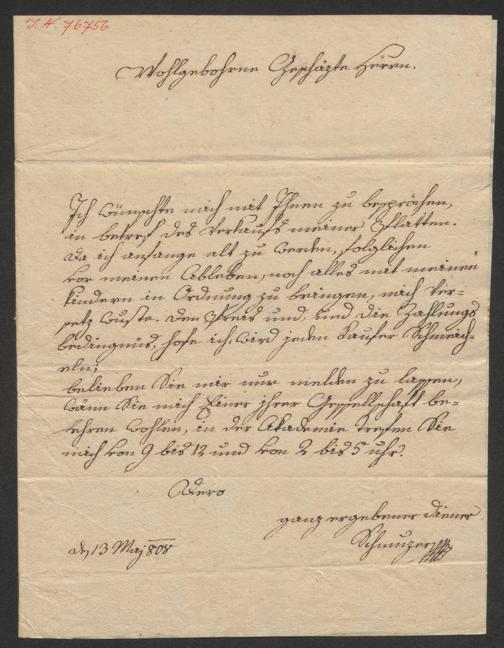 I. N. 76756
Wohlgebohrne Geschäzte Herrn.
Ich wünschte mich mit Ihnen zu besprächen,
in betref des Verkaufs meiner Platten.
Da ich anfange alt zu werden, folglichen
vor meinen Ableben, noch alles mit meinen
Kindern in Ordnung zu bringen, mich Ver-
setz wuste. Den Preis und, und die Zahlungs
bedingnüs, hofe ich, wird jeden Kaufer Schmeich-
eln;
belieben Sie mir nur melden zu lassen,
wann Sie mich Einer ihrer Gesellschaft be-
ehren wohlen, in der Akademie trefen Sie
mich von 9 bis 12 und von 2 bis 5 uhr.
Dero
ganz ergebener diener
Schmuzer
den 13 Maj 808